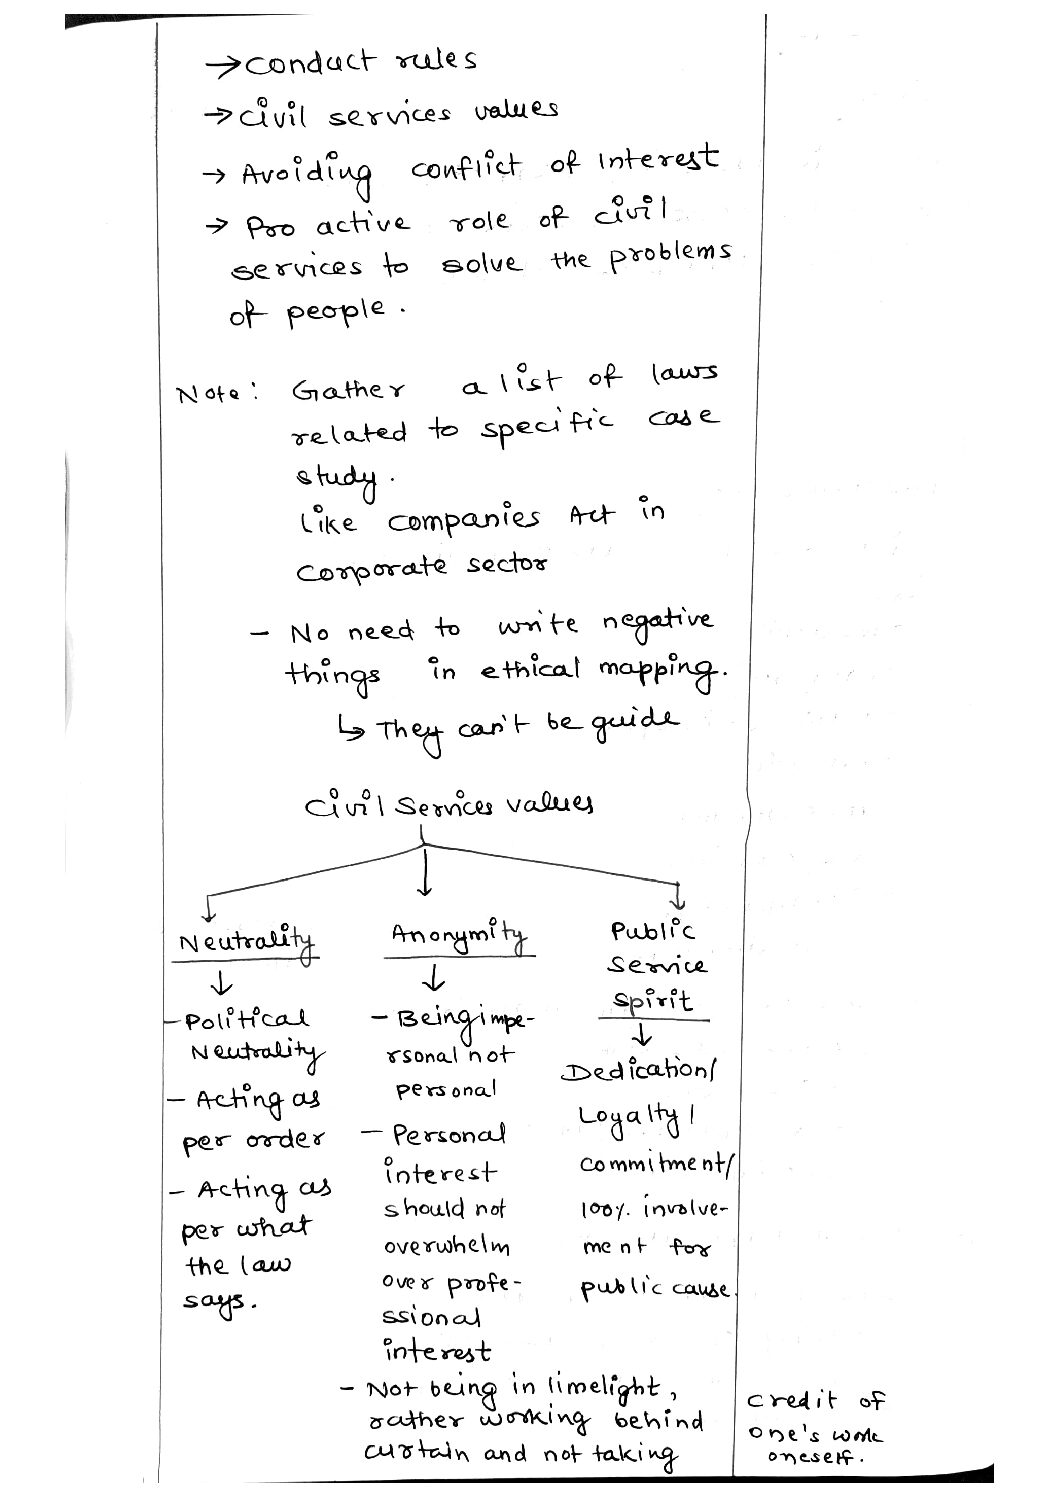 → conduct rules
→ civil services values
→ Avoiding conflict of Interest
→ Pro active role of civil
services to solve the problems
of people.
Note: Gather a list of laws
related to specific case
study.
Like companies Act in
corporate sector
- No need to write negative
things in ethical mapping.
↳ They can't be guide
Civil Services values
Neutrality
- Political
Neutrality
- Acting as
per order
- Acting as
per what
the law
says.
Anonymity
- Being impe-
rsonal not
personal
- Personal
interest
should not
overwhelm
over profe-
ssional
interest
- Not being in limelight,
rather working behind
curtain and not taking
credit of
one's work
oneself.
Public
Service
Spirit
Dedication/
Loyalty/
commitment/
100% involve-
ment for
public cause.